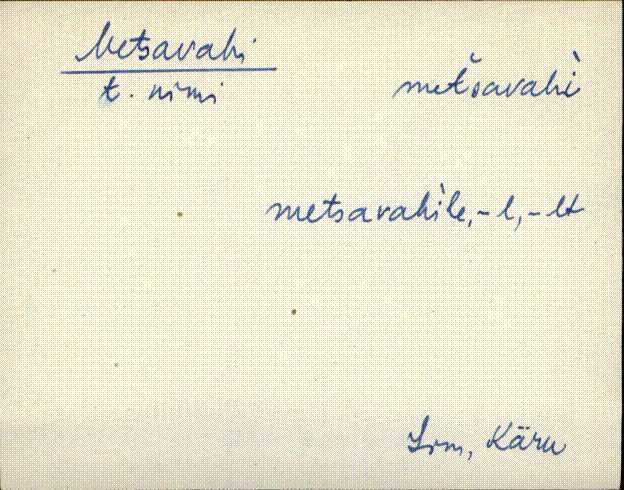 Metsavahi
t. nimi
metšavahì
metsavahile, -l, -lt
Trm, Käru